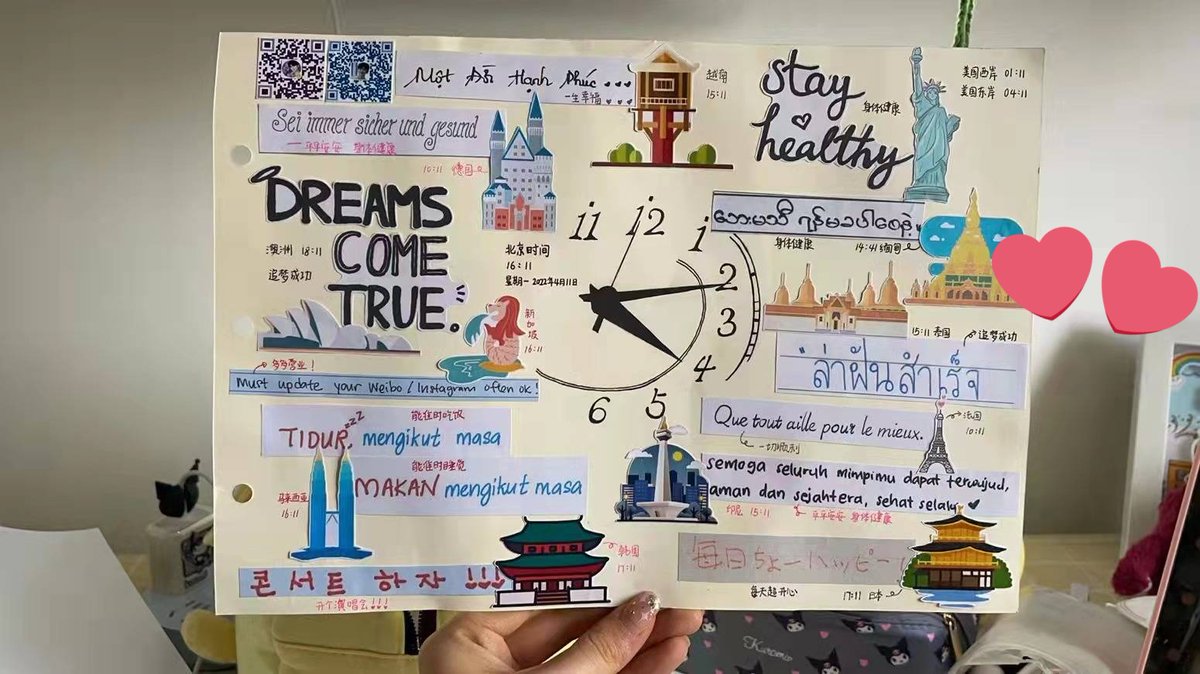 Một Đời Hạnh Phúc...
一生幸福
越南
15:11
stay
healthy
身体健康
美国西岸 01:11
美国东岸 04:11
Sei immer sicher und gesund
平平安安 身体健康
10:11 德国
DREAMS
COME
TRUE.
澳洲 18:11
追梦成功
北京时间
16:11
星期一 2022年4月11日
新加坡
16:11
11 12 1 2 3 4 5 6
ဘေးမသီ ရန်မခပါစေနဲ့
身体健康
14:41 缅甸
15:11 泰国
追梦成功
ล่าฝันสำเร็จ
多多营业!
Must update your Weibo / Instagram often ok!
能住时吃饭
TIDUR, zzZ mengikut masa
能住时睡觉
MAKAN mengikut masa
马来西亚
16:11
Que tout aille pour le mieux.
一切顺利
法国
10:11
semoga seluruh mimpimu dapat terwujud,
aman dan sejahtera, sehat selalu
印尼 15:11
平平安安 身体健康
콘서트 하자 !!!
开个演唱会!!!
韩国
17:11
每日ちょーハッピー
每天超开心
17:11 日本
Kuromi